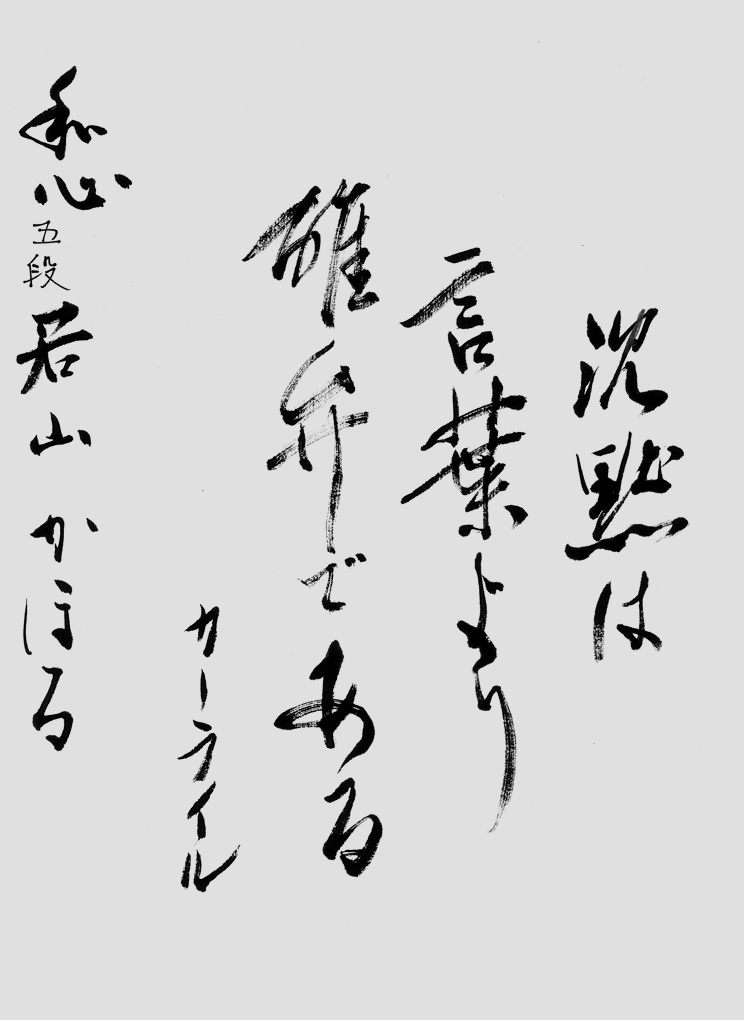 沈黙は
言葉より
雄弁である
カーライル
和心 五段 若山 かほる